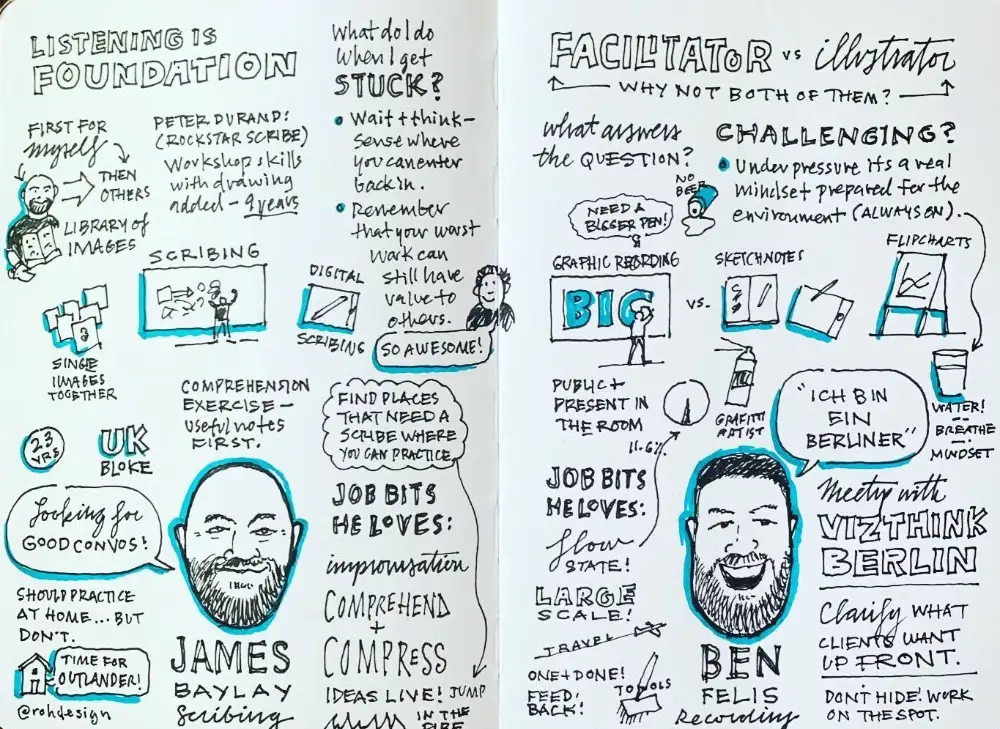 LISTENING IS
FOUNDATION
FIRST FOR
myself
THEN
OTHERS
LIBRARY OF
IMAGES
PETER DURAND!
(ROCKSTAR SCRIBE)
Workshop skills
with drawing
added - 9 years
What do I do
When I get
STUCK?
Wait + think -
sense where
you can enter
back in.
Remember
that your worst
work can
still have
value to
others.
SO AWESOME!
SCRIBING
DIGITAL
SCRIBING
SINGLE
IMAGES
TOGETHER
COMPREHENSION
EXERCISE -
useful notes
FIRST.
FIND PLACES
THAT NEED A
SCRIBE WHERE
YOU CAN PRACTICE
23
YRS
UK
BLOKE
Looking for
GOOD CONVOS!
SHOULD PRACTICE
AT HOME... BUT
DON'T.
TIME FOR
OUTLANDER!
@rohdesign
JAMES
BAYLAY
Scribing
JOB BITS
HE LOVES:
improvisation
COMPREHEND
+
COMPRESS
IDEAS LIVE! JUMP
IN THE
FACILITATOR vs illustrator
WHY NOT BOTH OF THEM?
what answers
the QUESTION?
NO
BEER
NEED A
BIGGER PEN!
CHALLENGING?
Under pressure it's a real
mindset prepared for the
environment (ALWAYS ON).
GRAPHIC RECORDING
BIG
VS.
SKETCHNOTES
FLIPCHARTS
PUBLIC +
PRESENT IN
THE ROOM
11.6%
GRAFITTI
ARTIST
"ICH BIN
EIN
BERLINER"
WATER!
BREATHE
MINDSET
JOB BITS
HE LOVES:
flow
STATE!
LARGE
SCALE!
TRAVEL
ONE + DONE!
FEED!
BACK!
TOOLS
BEN
FELIS
Recording
Meetup with
VIZTHINK
BERLIN
Clarify WHAT
CLIENTS WANT
UP FRONT.
DON'T HIDE! WORK
ON THE SPOT.